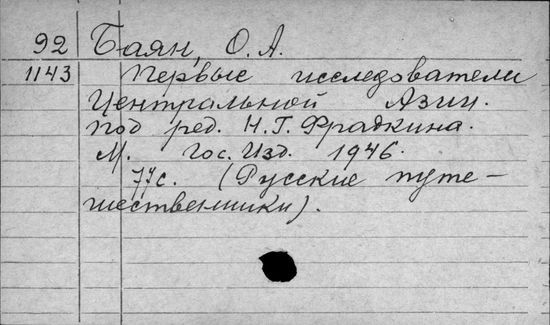 92 Баян, О. А.
1143 Первые исследователи
Центральной Азии.
под ред. Н. Г. Фрадкина.
М. Гос. Изд. 1946.
77с. (Русские путе-
шественники).